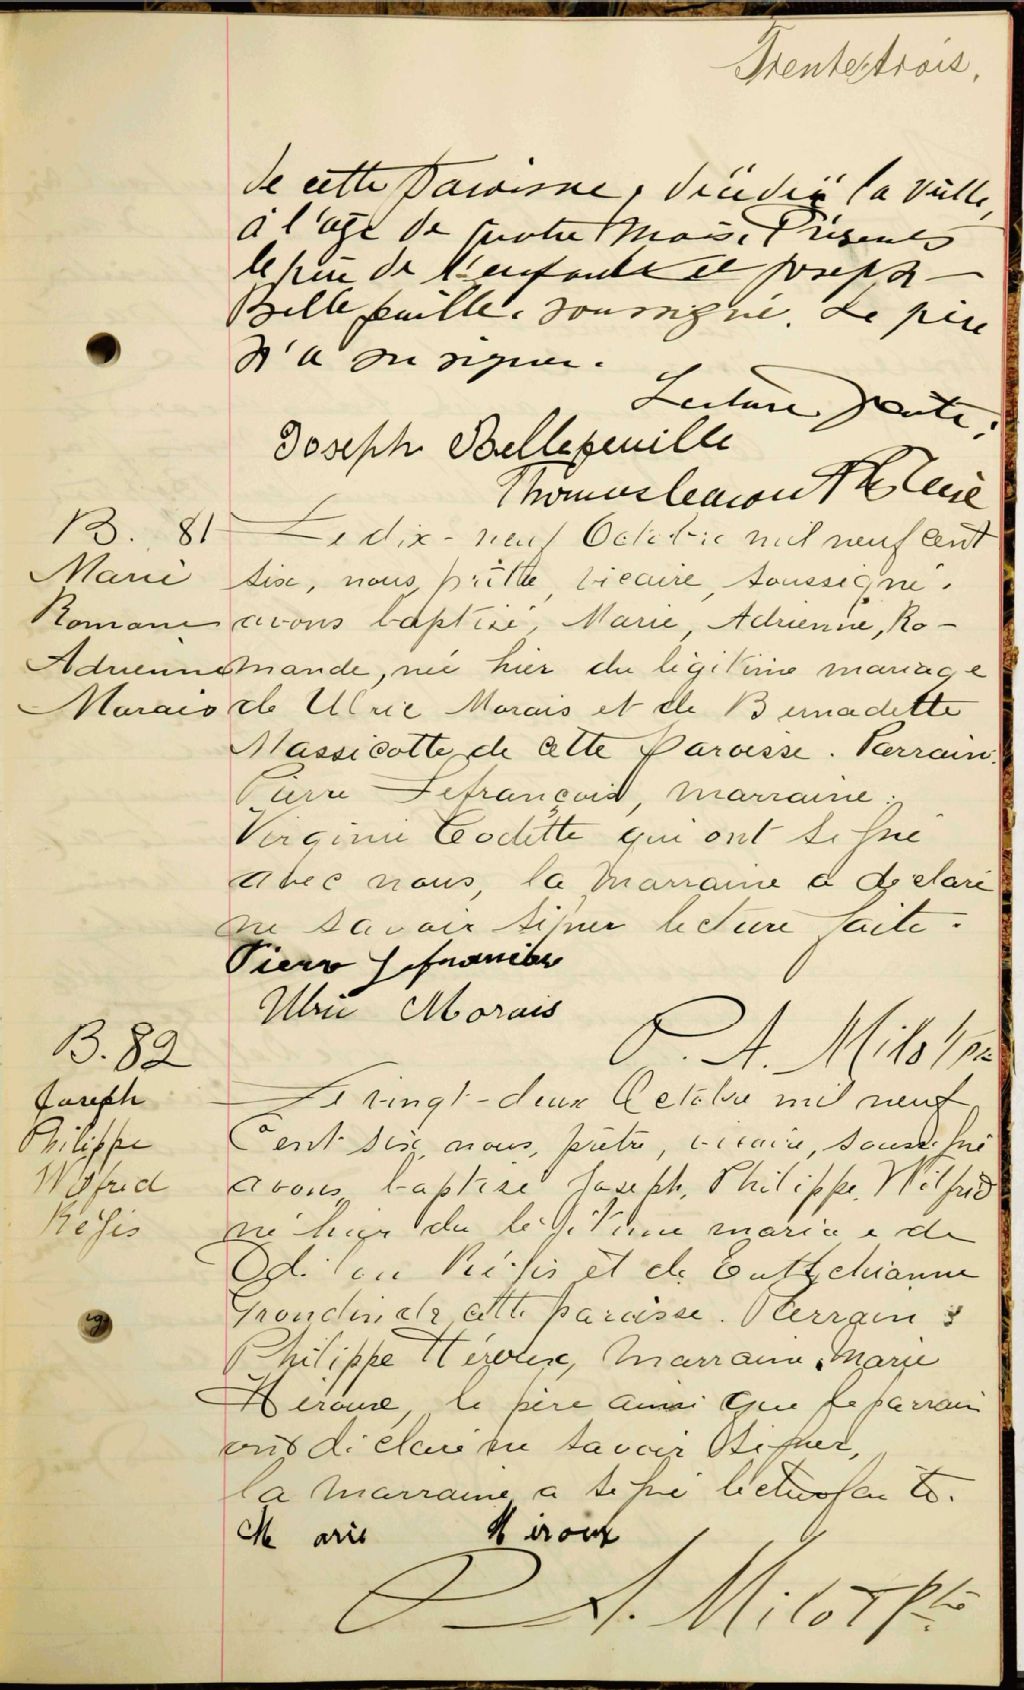 Trente-trois.
de cette paroisse, décédé la veille,
à l'âge de quatre mois. Présents
le père de l'enfant et Joseph
Bellefeuille, soussigné. Le père
n'a su signer.
Lecture faite:
Joseph Bellefeuille
Thomas Caron Ptre Curé
B. 81
Marie
Romane
Adrienne
Marais
Le dix-neuf Octobre mil neuf cent
six, nous, prêtre, vicaire, soussigné,
avons baptisé, Marie, Adrienne, Ro-
mande, née hier du légitime mariage
de Ulric Marais et de Bernadette
Massicotte de cette paroisse. Parrain:
Pierre Lefrançois, marraine:
Virginie Codette qui ont signé
avec nous, la marraine a déclaré
ne savoir signer lecture faite.
Pierre Lefrancois
Ulric Morais
P. A. Milot ptre
B. 82
Joseph
Philippe
Wilfred
Régis
Le vingt-deux Octobre mil neuf
Cent six, nous, prêtre, vicaire, soussigné
avons, baptisé Joseph, Philippe, Wilfrid
né hier du légitime mariage de
Odilon Régis et de Euttychianne
Grondin de cette paroisse. Parrain:
Philippe Héroux, Marraine, Marie
Héroux, le père ainsi que le parrain
ont déclaré ne savoir signer,
la marraine a signé lecture faite.
Marie Héroux
P. A. Milot Ptre